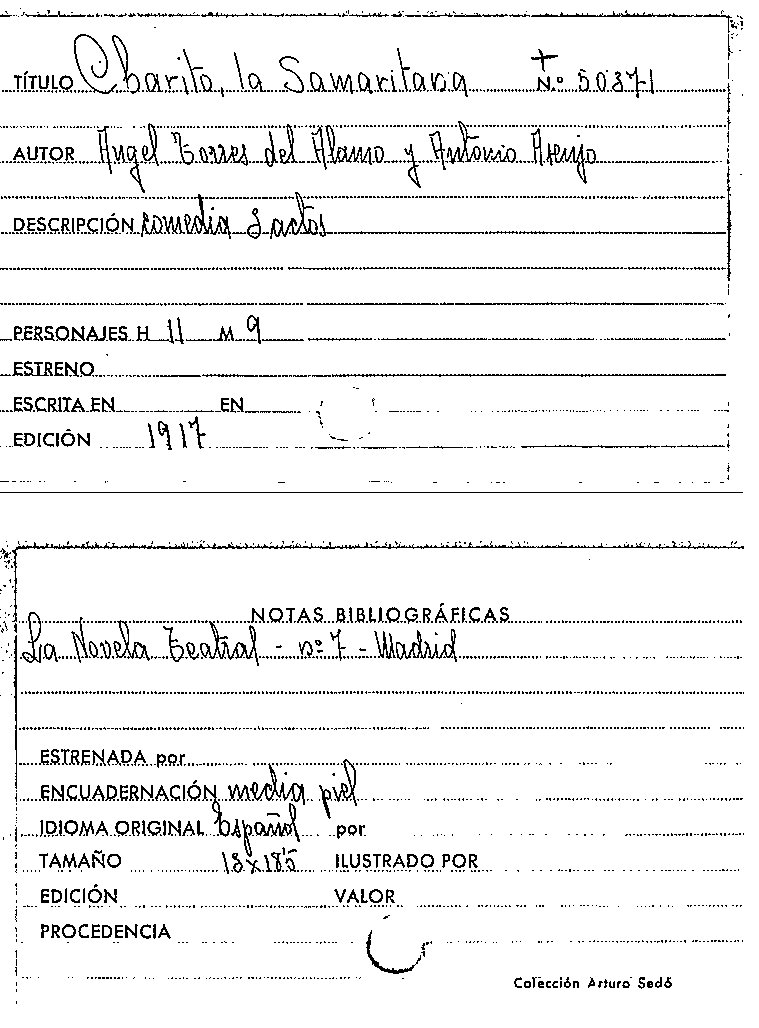 TÍTULO Charito, la Samaritana N.º 50371
AUTOR Angel Torres del Alamo y Antonio Asenjo
DESCRIPCIÓN comedia 3 actos
PERSONAJES H 11 M 9
ESTRENO
ESCRITA EN EN
EDICIÓN 1917
NOTAS BIBLIOGRÁFICAS
La Novela Teatral - nº 7 - Madrid
ESTRENADA por
ENCUADERNACIÓN media piel
IDIOMA ORIGINAL Español por
TAMAÑO 13x18'5 ILUSTRADO POR
EDICIÓN VALOR
PROCEDENCIA
Colección Arturo Sedó